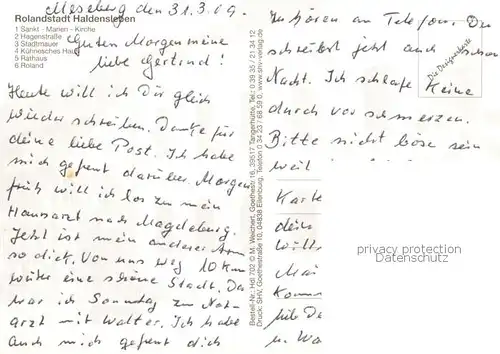 Meseberg den 31.3.09.
Rolandstadt Haldensleben
1 Sankt - Marien - Kirche
2 Hagenstraße
3 Stadtmauer
4 Kühnesches Haus
5 Rathaus
6 Roland
Guten Morgen meine
liebe Gertrud!
Heute will ich Dir gleich
wieder schreiben. Danke für
deine liebe Post. Ich habe
mich gefreut darüber. Morgen
früh will ich los zu mein
Hausarzt nach Magdeburg.
Jetzt ist mein anderer Arm
so dick. Von uns weg 10 Km
weiter eine schöne Stadt. Da
war ich Sonntag zum Not-
arzt mit Walter. Ich habe
auch mich gefreut dich
Bestell-Nr.: Hdl 202 © M. Weichert, Goethestr. 16, 39517 Tangerhütte, Tel.: 0 39 35 / 21 34 12
Druck: SHV, Goethestraße 10, 04838 Eilenburg, Telefon (0 34 23) 6 68 59 0, www.shv-verlag.de
zu hören am Telefon. Du
schreibst jetzt auch schon
Nacht. Ich schlafe keine
durch vor schmerzen.
Bitte nicht böse sein
weil
Karte
dein
will
Mai
Komm
liebe Da
u. Wa
Die Designkarte
privacy protection
Datenschutz